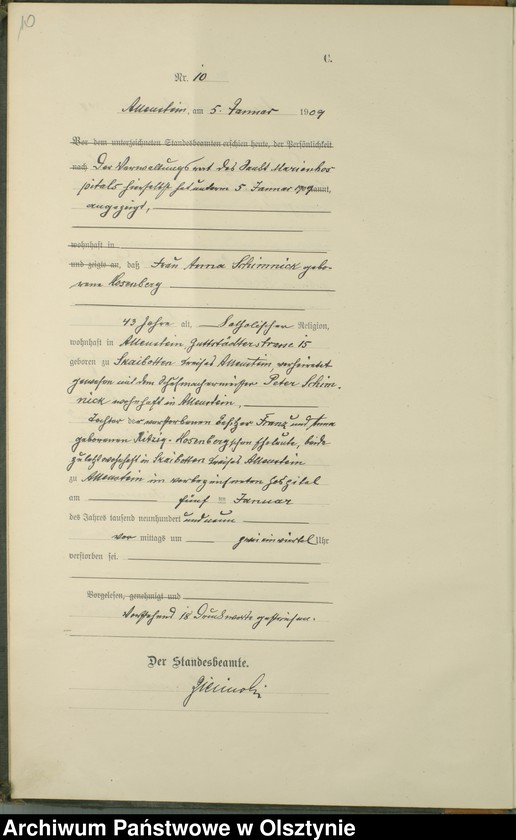 10
C.
Nr. 10
Allenstein, am 5. Januar 1909
Vor dem unterzeichneten Standesbeamten erschien heute, der Persönlichkeit
nach Der Verwaltungsrat des Stadt Marienhos
pitals hierselbst hat unterm 5. Januar 1909 kannt,
angezeigt,
wohnhaft in
und zeigte an, daß Frau Anna Schimnick gebo-
rene Rosenberg
43 Jahre alt, Katholischer Religion,
wohnhaft in Allenstein, Guttstädterstrasse 15
geboren zu Skaibotten Kreises Allenstein, verheiratet
gewesen mit dem Schuhmachermeister Peter Schim-
nick wohnhaft in Allenstein.
Tochter der verstorbenen Besitzer Franz und Anna
geborenen Rosenberg'schen Eheleute, beide
zuletzt wohnhaft in Skaibotten Kreises Allenstein
zu Allenstein im vorbezeichneten Hospital
am fünf ten Januar
des Jahres tausend neunhundert und neun
vor mittags um zwei einviertel Uhr
verstorben sei.
Vorgelesen, genehmigt und
Vorstehend 18 Druckworte gestrichen.
Der Standesbeamte.
Archiwum Państwowe w Olsztynie